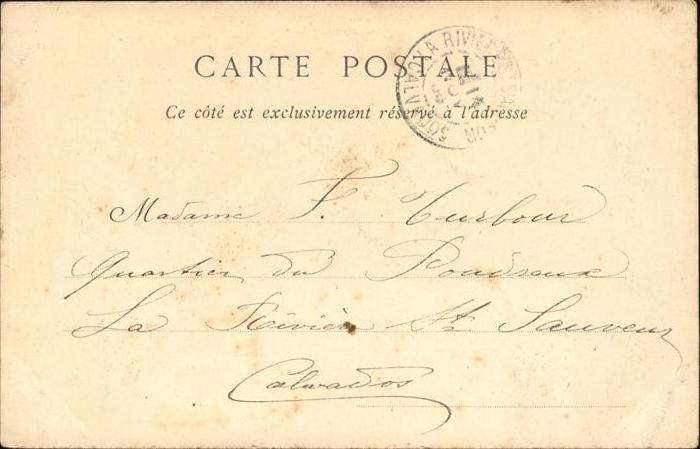 CARTE POSTALE
Ce côté est exclusivement réservé à l'adresse
Madame F. Turbour
Quartier du Poudreux
La Rivière St Sauveur
Calvados